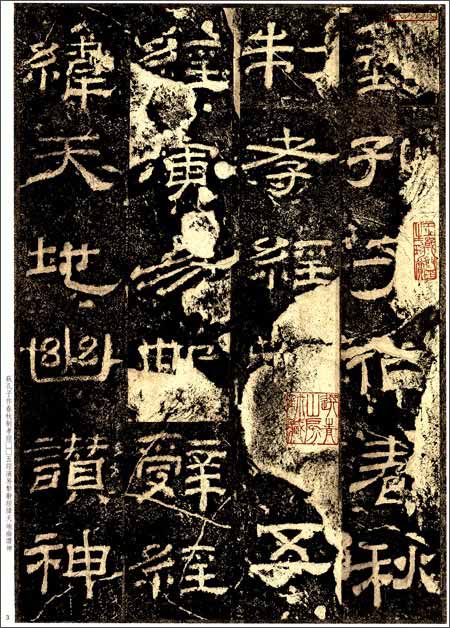 孔子作春秋
制孝經五
經演易繫辭經
緯天地幽讚神
孔子作春秋制孝經□□五經演易繫辭經緯天地幽讚神
3